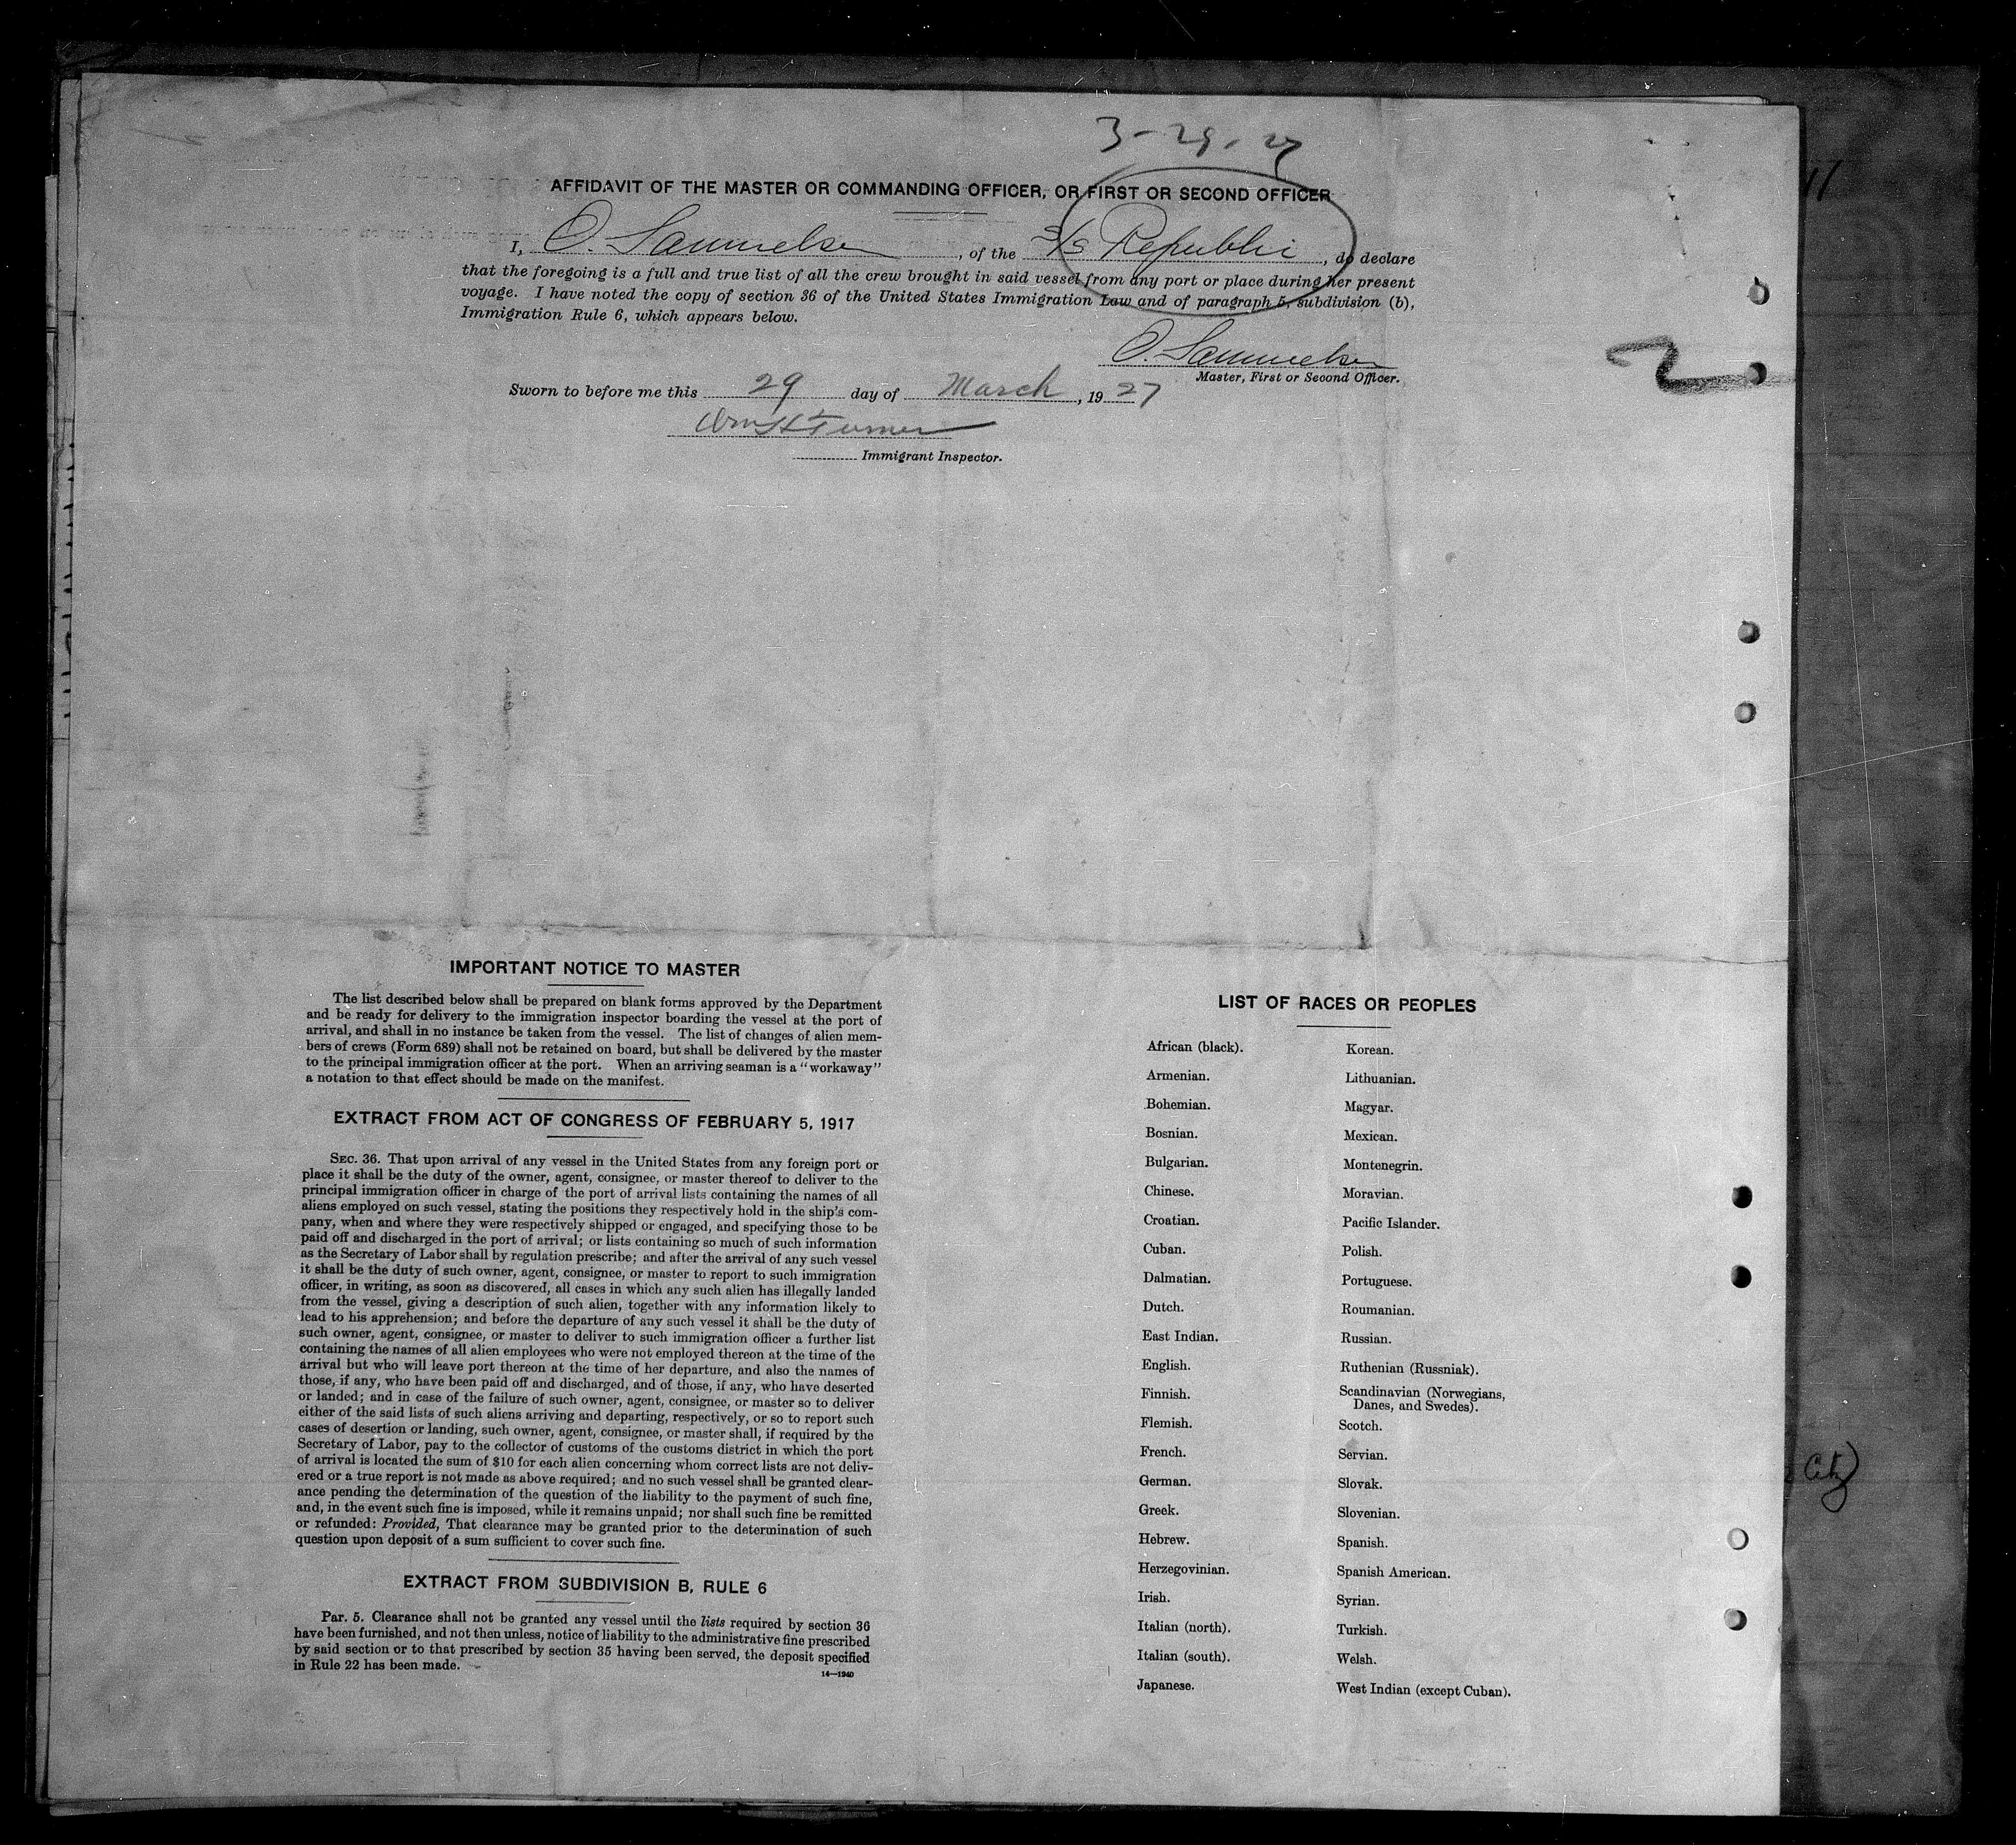 3-29-27
AFFIDAVIT OF THE MASTER OR COMMANDING OFFICER, OR FIRST OR SECOND OFFICER
I, O. Samuelsen, of the S/S Republic, do declare
that the foregoing is a full and true list of all the crew brought in said vessel from any port or place during her present
voyage. I have noted the copy of section 36 of the United States Immigration Law and of paragraph 5, subdivision (b),
Immigration Rule 6, which appears below.
O. Samuelsen
Master, First or Second Officer.
Sworn to before me this 29 day of March, 1927
Wm H Turner
Immigrant Inspector.
2
IMPORTANT NOTICE TO MASTER
The list described below shall be prepared on blank forms approved by the Department
and be ready for delivery to the immigration inspector boarding the vessel at the port of
arrival, and shall in no instance be taken from the vessel. The list of changes of alien mem-
bers of crews (Form 689) shall not be retained on board, but shall be delivered by the master
to the principal immigration officer at the port. When an arriving seaman is a "workaway"
a notation to that effect should be made on the manifest.
EXTRACT FROM ACT OF CONGRESS OF FEBRUARY 5, 1917
SEC. 36. That upon arrival of any vessel in the United States from any foreign port or
place it shall be the duty of the owner, agent, consignee, or master thereof to deliver to the
principal immigration officer in charge of the port of arrival lists containing the names of all
aliens employed on such vessel, stating the positions they respectively hold in the ship's com-
pany, when and where they were respectively shipped or engaged, and specifying those to be
paid off and discharged in the port of arrival; or lists containing so much of such information
as the Secretary of Labor shall by regulation prescribe; and after the arrival of any such vessel
it shall be the duty of such owner, agent, consignee, or master to report to such immigration
officer, in writing, as soon as discovered, all cases in which any such alien has illegally landed
from the vessel, giving a description of such alien, together with any information likely to
lead to his apprehension; and before the departure of any such vessel it shall be the duty of
such owner, agent, consignee, or master to deliver to such immigration officer a further list
containing the names of all alien employees who were not employed thereon at the time of the
arrival but who will leave port thereon at the time of her departure, and also the names of
those, if any, who have been paid off and discharged, and of those, if any, who have deserted
or landed; and in case of the failure of such owner, agent, consignee, or master so to deliver
either of the said lists of such aliens arriving and departing, respectively, or so to report such
cases of desertion or landing, such owner, agent, consignee, or master shall, if required by the
Secretary of Labor, pay to the collector of customs of the customs district in which the port
of arrival is located the sum of $10 for each alien concerning whom correct lists are not deliv-
ered or a true report is not made as above required; and no such vessel shall be granted clear-
ance pending the determination of the question of the liability to the payment of such fine,
and, in the event such fine is imposed, while it remains unpaid; nor shall such fine be remitted
or refunded: Provided, That clearance may be granted prior to the determination of such
question upon deposit of a sum sufficient to cover such fine.
EXTRACT FROM SUBDIVISION B, RULE 6
Par. 5. Clearance shall not be granted any vessel until the lists required by section 36
have been furnished, and not then unless, notice of liability to the administrative fine prescribed
by said section or to that prescribed by section 35 having been served, the deposit specified
in Rule 22 has been made.
14—1240
LIST OF RACES OR PEOPLES
African (black).
Armenian.
Bohemian.
Bosnian.
Bulgarian.
Chinese.
Croatian.
Cuban.
Dalmatian.
Dutch.
East Indian.
English.
Finnish.
Flemish.
French.
German.
Greek.
Hebrew.
Herzegovinian.
Irish.
Italian (north).
Italian (south).
Japanese.
Korean.
Lithuanian.
Magyar.
Mexican.
Montenegrin.
Moravian.
Pacific Islander.
Polish.
Portuguese.
Roumanian.
Russian.
Ruthenian (Russniak).
Scandinavian (Norwegians,
Danes, and Swedes).
Scotch.
Servian.
Slovak.
Slovenian.
Spanish.
Spanish American.
Syrian.
Turkish.
Welsh.
West Indian (except Cuban).